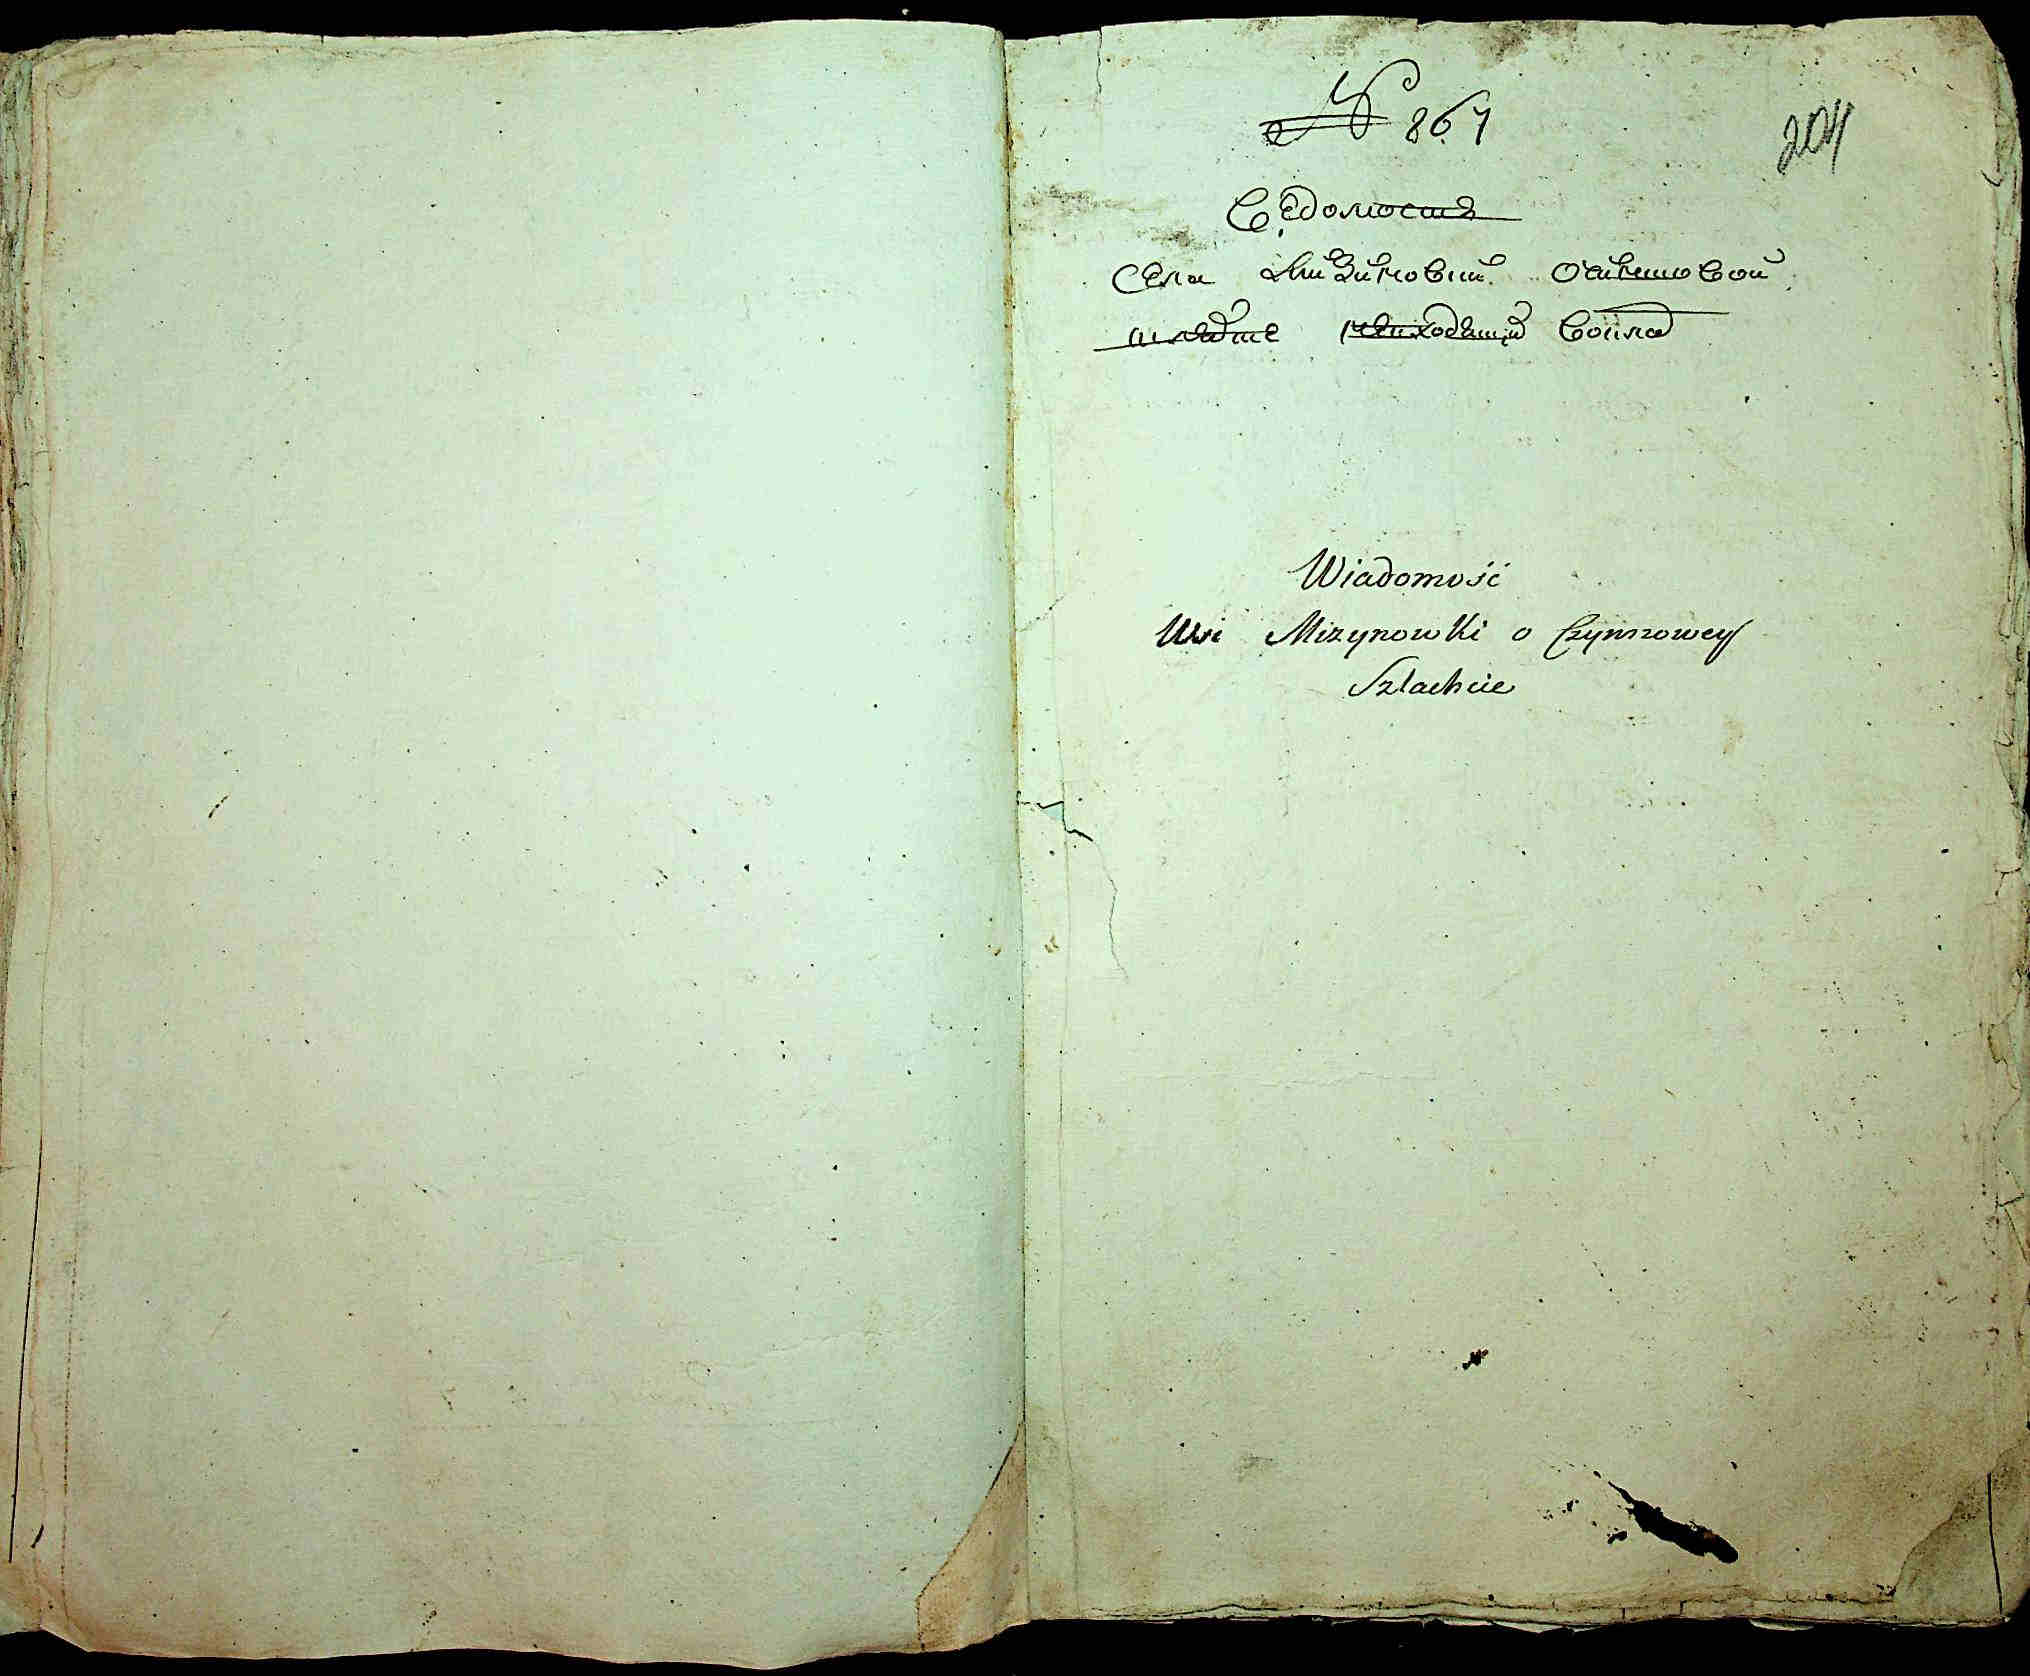 № 867
204
Ведомость
Села Мизиновки о чиншовой
шляхте
Wiadomość
Wsi Mizynowki o Czynszowey
Szlachcie